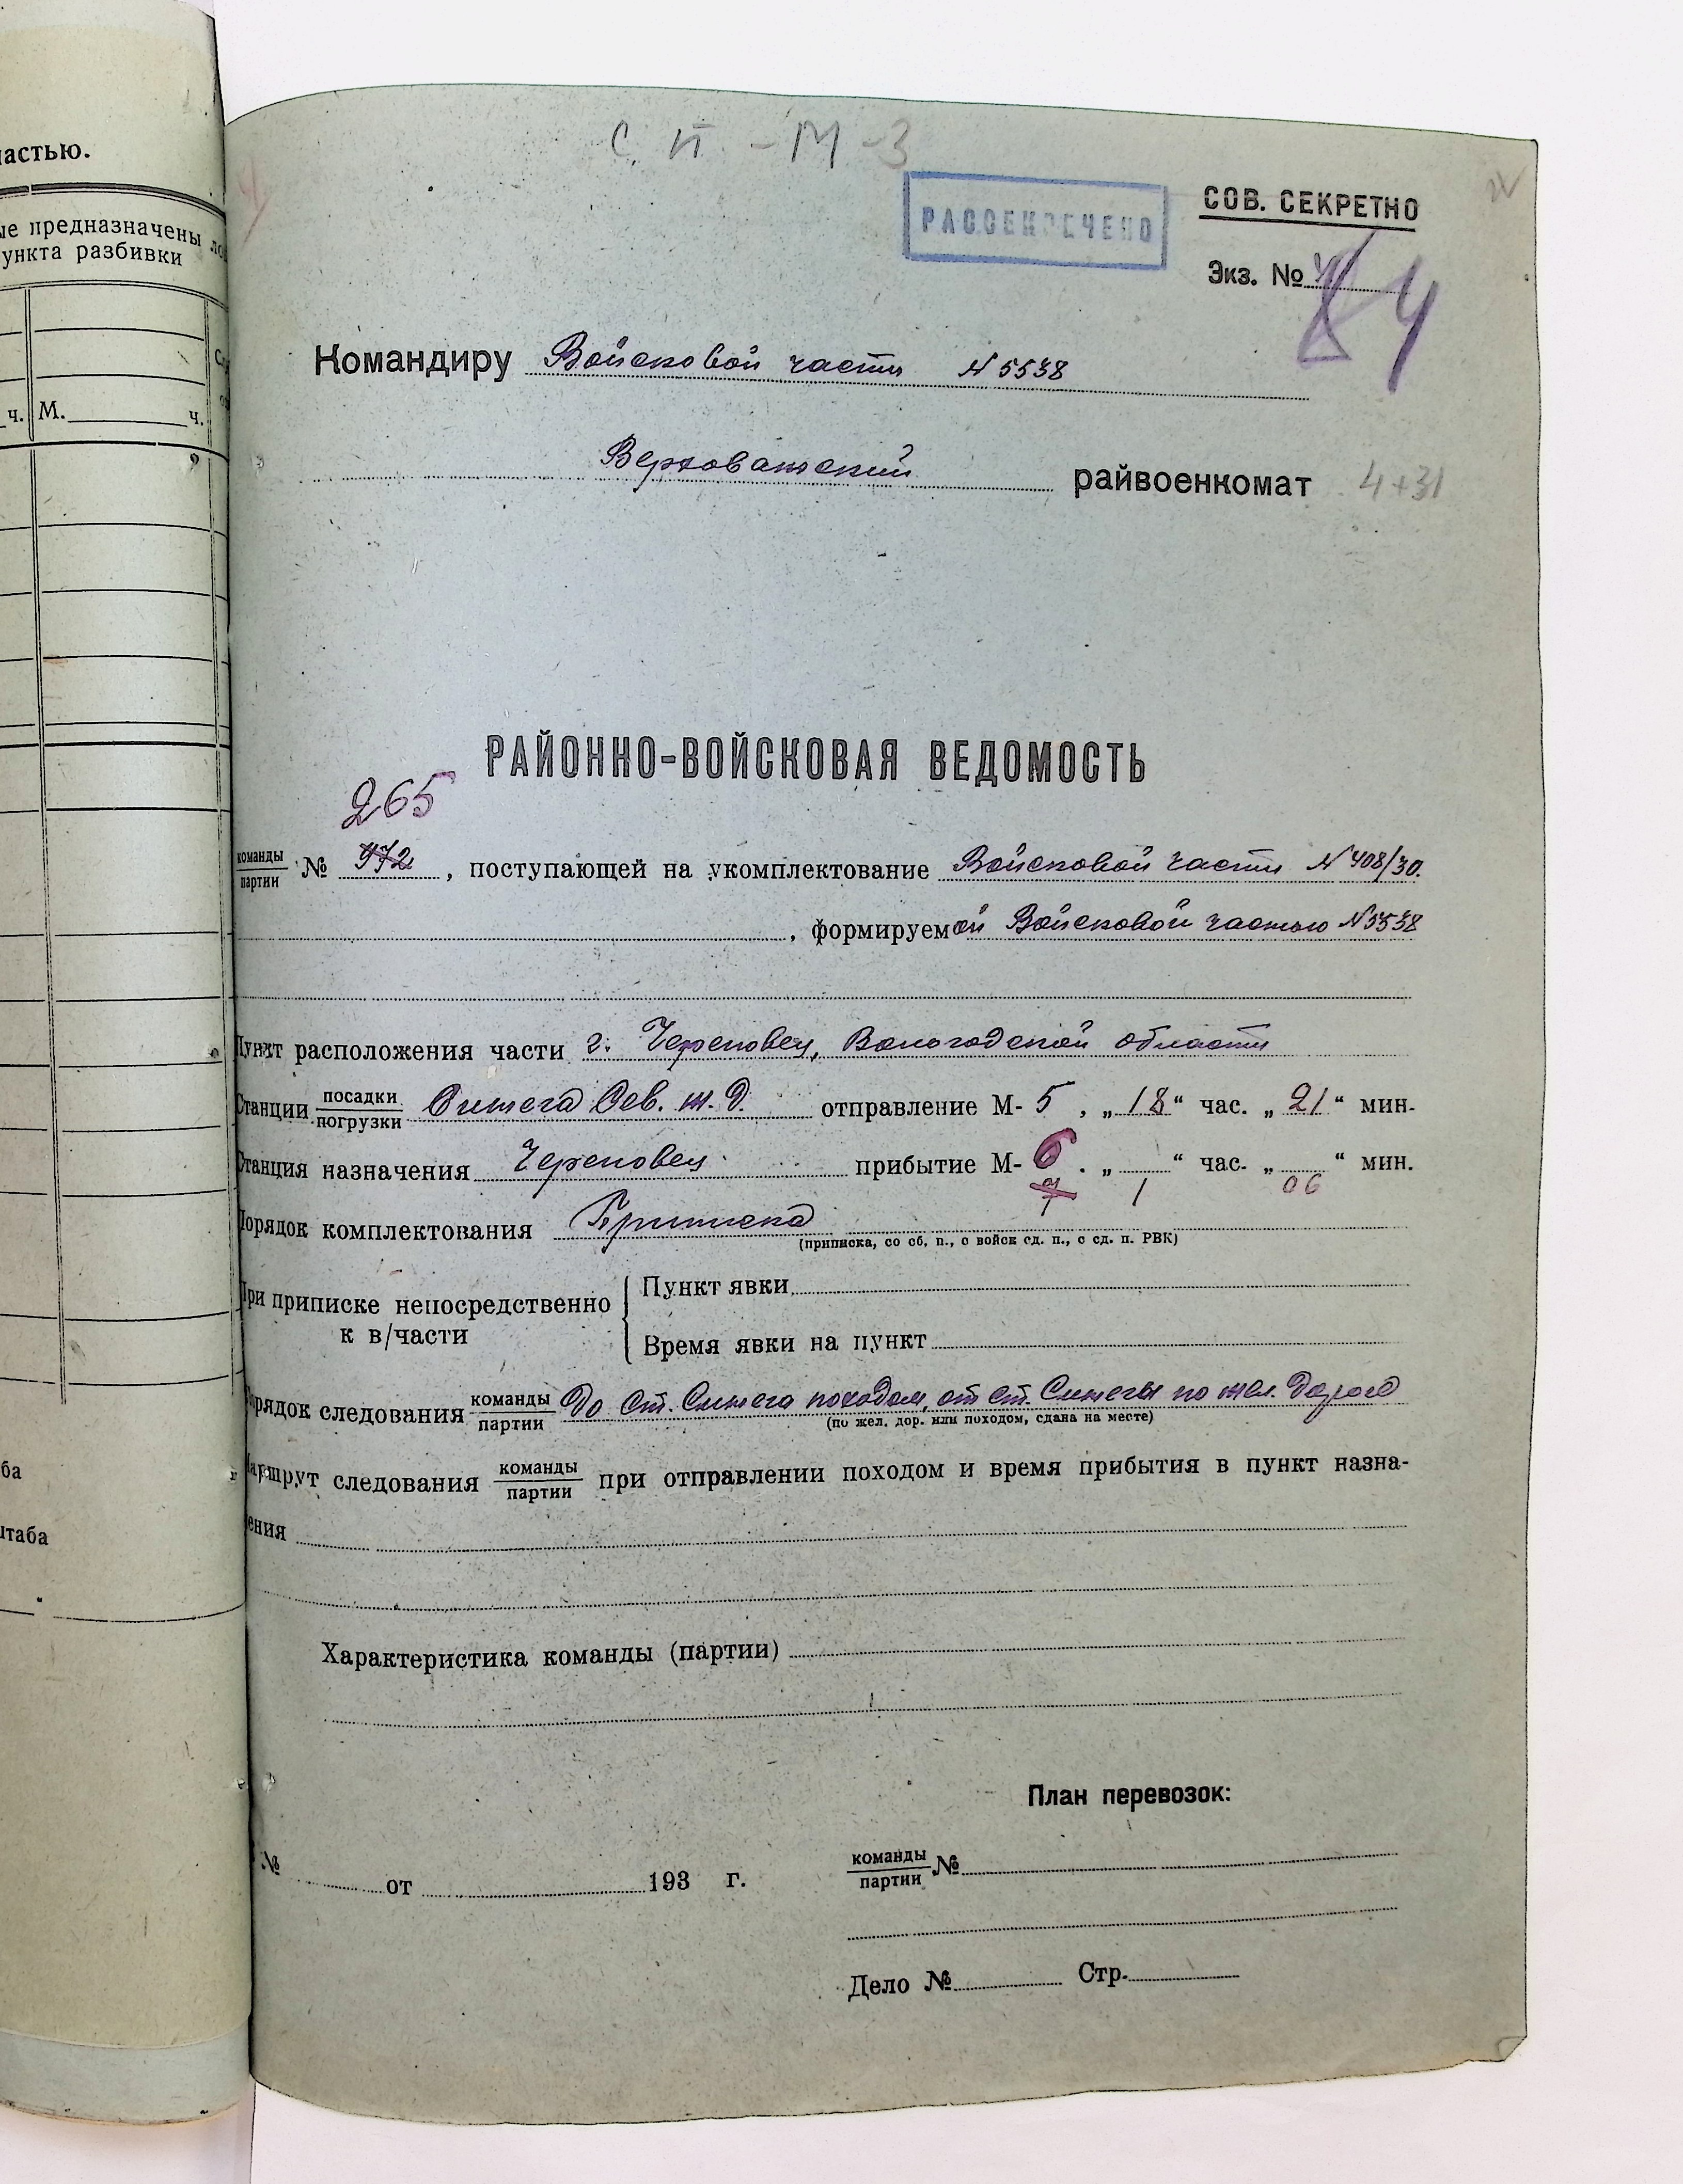 частью.
ые предназначены
пункта разбивки
ч. М. ч.
ба
штаба
С П - М - 3
РАССЕКРЕЧЕНО
СОВ. СЕКРЕТНО
Экз. №
84
Командиру Войсковой части N 5538
Верховажский райвоенкомат 4+31
РАЙОННО-ВОЙСКОВАЯ ВЕДОМОСТЬ
265
команды
партии
№ 972, поступающей на укомплектование Войсковой части N 408/30.
, формируемой Войсковой частью N 5538
Пункт расположения части г. Череповец, Вологодской области
Станции посадки
погрузки
Синега Сев. ж. д. отправление М- 5, „18“ час. „21“ мин.
Станция назначения Череповец прибытие М- 6. „ “ час. „ “ мин.
7 1 06
Порядок комплектования Приписка
(приписка, со сб. п., с войск сд. п., с сд. п. РВК)
При приписке непосредственно
к в/части
Пункт явки
Время явки на пункт
Порядок следования команды
партии
До ст. Синега походом, от ст. Синега по жел. дороге
(по жел. дор. или походом, сдана на месте)
Маршрут следования команды
партии
при отправлении походом и время прибытия в пункт назна-
чения
Характеристика команды (партии)
План перевозок:
№ от 193 г.
команды
партии
№
Дело № Стр.